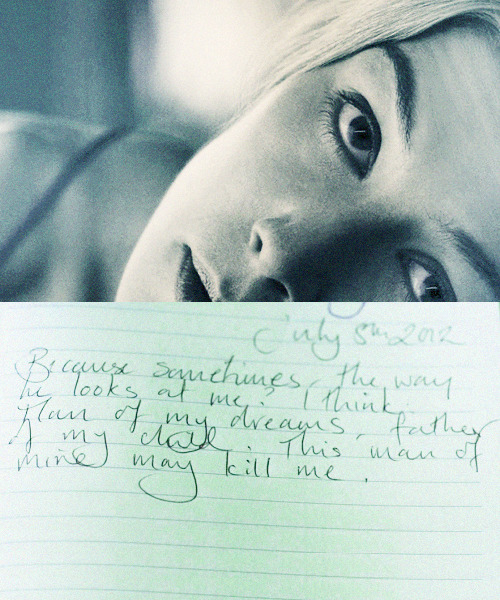 July 5th 2012
Because sometimes, the way
he looks at me? I think:
Man of my dreams, father
of my child: This man of
mine may kill me.